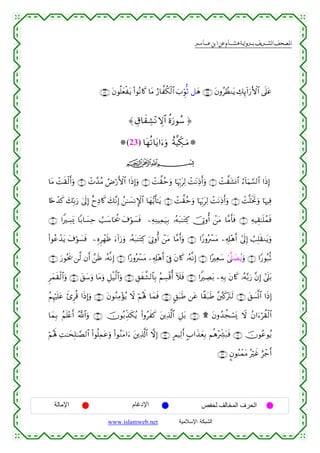 المصحف الشريف برواية هشام عن ابن عامر
عَلَى ٱلْأَرَآئِكِ يَنظُرُونَ هَل ثُّوِّبَ ٱلْكُفَّارُ مَا كَانُوا۟ يَفْعَلُونَ
﴿ سُورَةُ ٱلِٱنشِقَاقِ ﴾
مَكِّيَّةٌ وَءَايَاتُهَا (23)
بِسْمِ ٱللَّهِ ٱلرَّحْمَٰنِ ٱلرَّحِيمِ
إِذَا ٱلسَّمَآءُ ٱنشَقَّتْ وَأَذِنَتْ لِرَبِّهَا وَحُقَّتْ وَإِذَا ٱلْأَرْضُ مُدَّتْ وَأَلْقَتْ مَا
فِيهَا وَتَخَلَّتْ وَأَذِنَتْ لِرَبِّهَا وَحُقَّتْ يَٰٓأَيُّهَا ٱلْإِنسَٰنُ إِنَّكَ كَادِحٌ إِلَىٰ رَبِّكَ كَدْحًا
فَمُلَٰقِيهِ فَأَمَّا مَنْ أُوتِىَ كِتَٰبَهُۥ بِيَمِينِهِۦ فَسَوْفَ يُحَاسَبُ حِسَابًا يَسِيرًا
وَيَنقَلِبُ إِلَىٰٓ أَهْلِهِۦ مَسْرُورًا وَأَمَّا مَنْ أُوتِىَ كِتَٰبَهُۥ وَرَآءَ ظَهْرِهِۦ فَسَوْفَ يَدْعُوا۟
ثُبُورًا وَيُصَلَّىٰ سَعِيرًا إِنَّهُۥ كَانَ فِىٓ أَهْلِهِۦ مَسْرُورًا إِنَّهُۥ ظَنَّ أَن لَّن يَحُورَ
بَلَىٰٓ إِنَّ رَبَّهُۥ كَانَ بِهِۦ بَصِيرًا فَلَآ أُقْسِمُ بِٱلشَّفَقِ وَٱلَّيْلِ وَمَا وَسَقَ وَٱلْقَمَرِ
إِذَا ٱتَّسَقَ لَتَرْكَبُنَّ طَبَقًا عَن طَبَقٍ فَمَا لَهُمْ لَا يُؤْمِنُونَ وَإِذَا قُرِئَ عَلَيْهِمُ
ٱلْقُرْءَانُ لَا يَسْجُدُونَ ۩ بَلِ ٱلَّذِينَ كَفَرُوا۟ يُكَذِّبُونَ وَٱللَّهُ أَعْلَمُ بِمَا
يُوعُونَ فَبَشِّرْهُم بِعَذَابٍ أَلِيمٍ إِلَّا ٱلَّذِينَ ءَامَنُوا۟ وَعَمِلُوا۟ ٱلصَّٰلِحَٰتِ لَهُمْ
أَجْرٌ غَيْرُ مَمْنُونٍۭ
الحرف المخالف لحفص الإدغام الإمالة
الشبكة الإسلامية www.islamweb.net